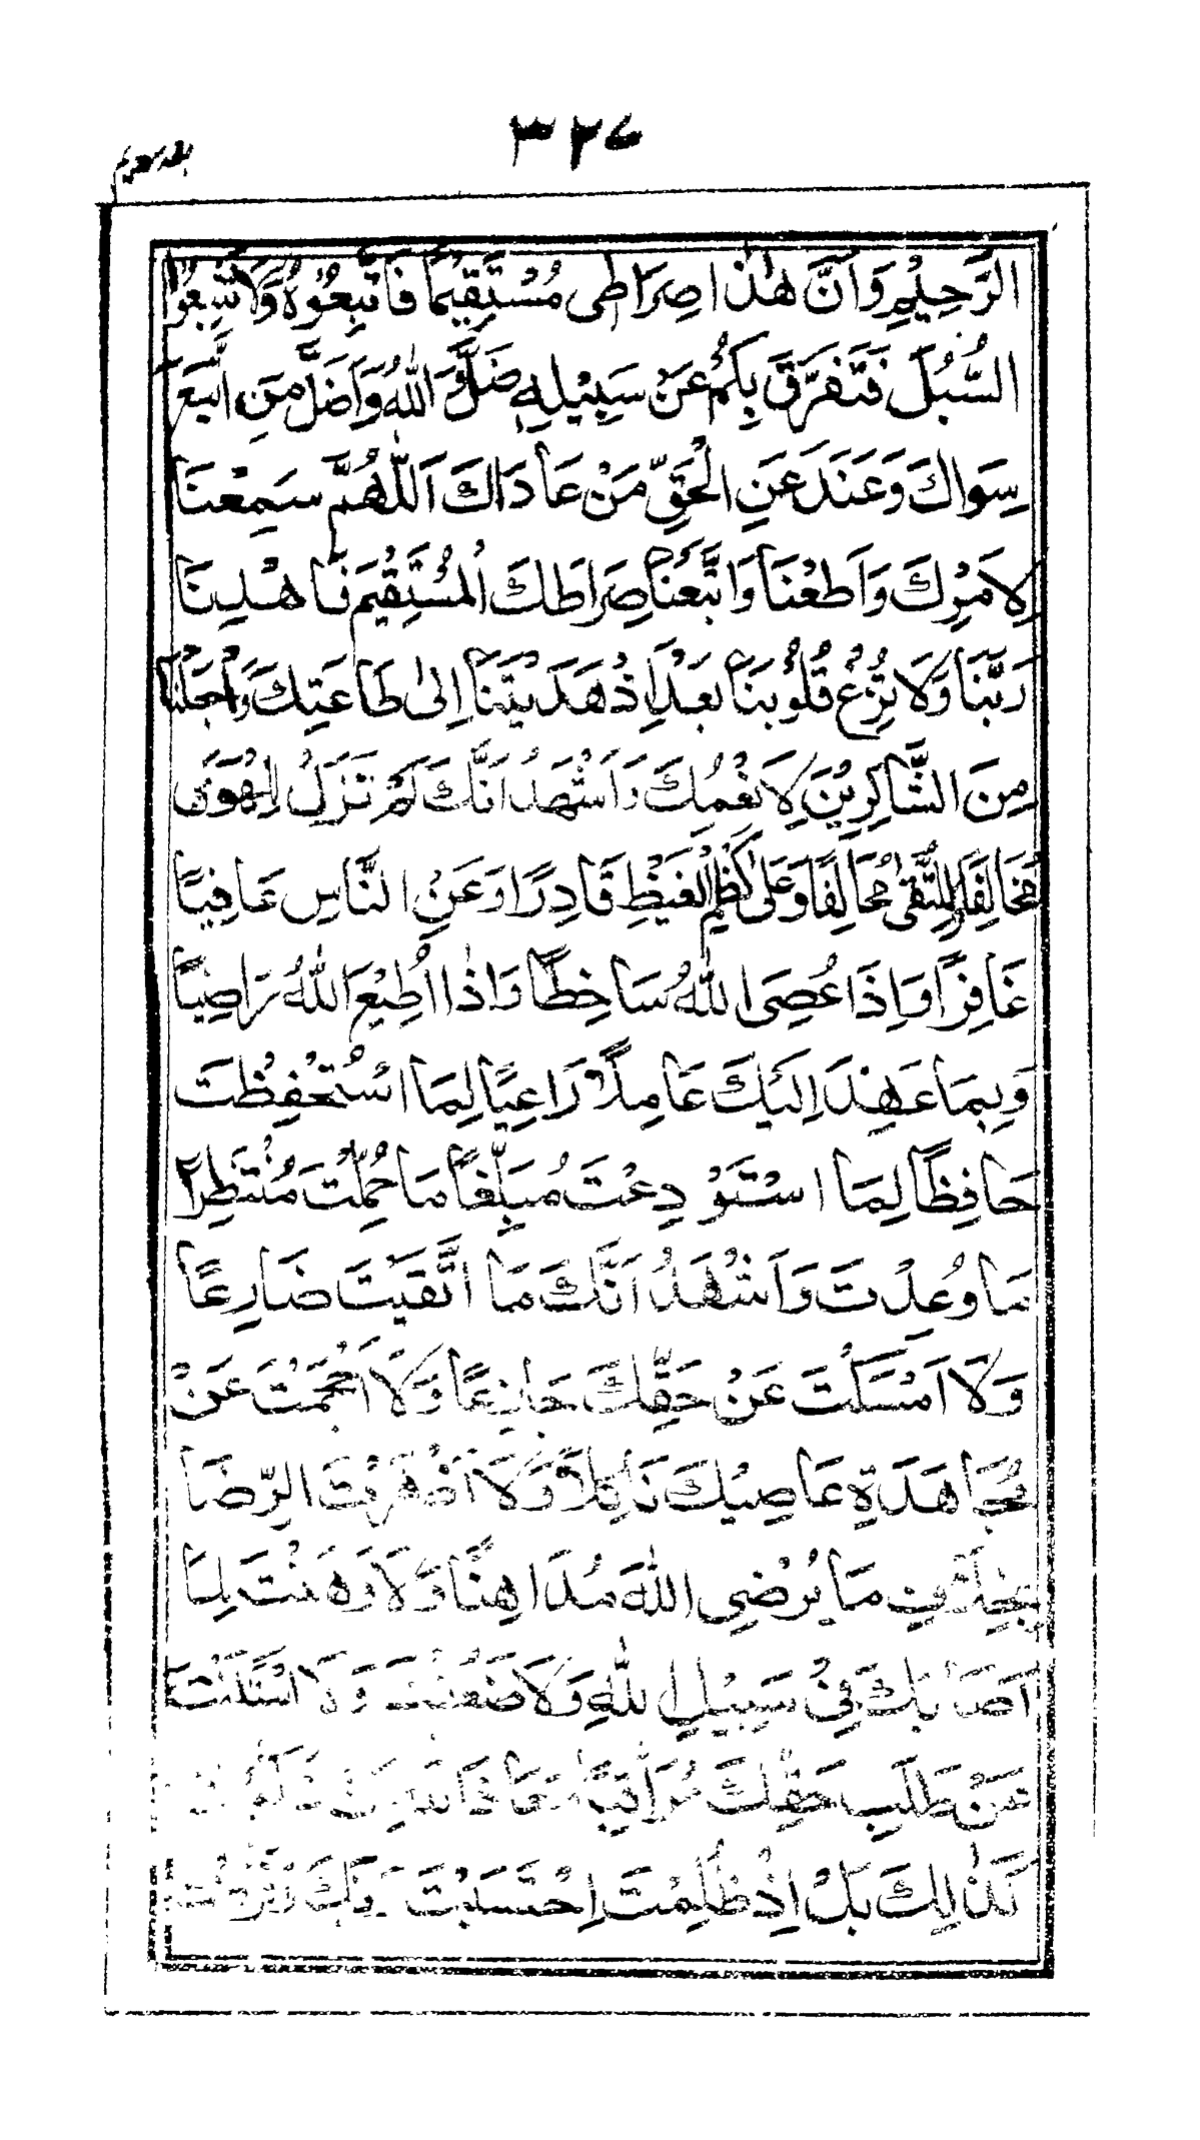 ٣٢٤
الرَّحِيْمِ وَاَنَّ هٰذَا صِرَاطِى مُسْتَقِيْمًا فَاتَّبِعُوْهُ وَلَا تَتَّبِعُوا
السُّبُلَ فَتَفَرَّقَ بِكُمْ عَنْ سَبِيْلِهٖ ضَلَّ وَاللّٰهُ وَاَضَلَّ مَنِ اتَّبَعَ
سِوَاكَ وَعَنَدَ عَنِ الْحَقِّ مَنْ عَادَاكَ اَللّٰهُمَّ سَمِعْنَا
لِاَمْرِكَ وَاَطَعْنَا وَاتَّبَعْنَا صِرَاطَكَ الْمُسْتَقِيْمَ فَاهْدِنَا
رَبَّنَا وَلَا تُزِغْ قُلُوْبَنَا بَعْدَ اِذْ هَدَيْتَنَا اِلىٰ طَاعَتِكَ وَاجْعَلْنَا
مِنَ الشَّاكِرِيْنَ لِاَنْعُمِكَ وَاَشْهَدُ اَنَّكَ لَمْ تَزَلْ لِلْهَوىٰ
مُخَالِفًا وَلِلتُّقىٰ مُحَالِفًا وَعَلىٰ كَظْمِ الْغَيْظِ قَادِرًا وَعَنِ النَّاسِ عَافِيًا
غَافِرًا وَاِذَا عُصِىَ اللّٰهُ سَاخِطًا وَاِذَا اُطِيْعَ اللّٰهُ رَاضِيًا
وَبِمَا عَهِدَ اِلَيْكَ عَامِلًا رَاعِيًا لِمَا اسْتُحْفِظْتَ
حَافِظًا لِمَا اسْتَوْدِعْتَ مُبَلِّغًا مَا حُمِّلْتَ مُنْتَظِرًا
مَا وُعِدْتَ وَاَشْهَدُ اَنَّكَ مَا اتَّقَيْتَ ضَارِعًا
وَلَا اَمْسَكْتَ عَنْ حَقِّكَ جَازِعًا وَلَا اَحْجَمْتَ عَنْ
مُجَاهَدَةِ عَاصِيْكَ نَاكِلًا وَلَا اَظْهَرْتَ الرِّضَا
بِخِلَافِ مَا يُرْضِى اللّٰهَ مُدَاهِنًا وَلَا وَهَنْتَ لِمَا
اَصَابَكَ فِىْ سَبِيْلِ اللّٰهِ وَلَا ضَعُفْتَ وَلَا اسْتَكَنْتَ
عَنْ طَلَبِ حَقِّكَ مُرَاقِبًا مَعَاذَ اللّٰهِ اَنْ تَكُوْنَ
كَذٰلِكَ بَلْ اِذْ ظُلِمْتَ اِحْتَسَبْتَ رَبَّكَ وَفَوَّضْتَ